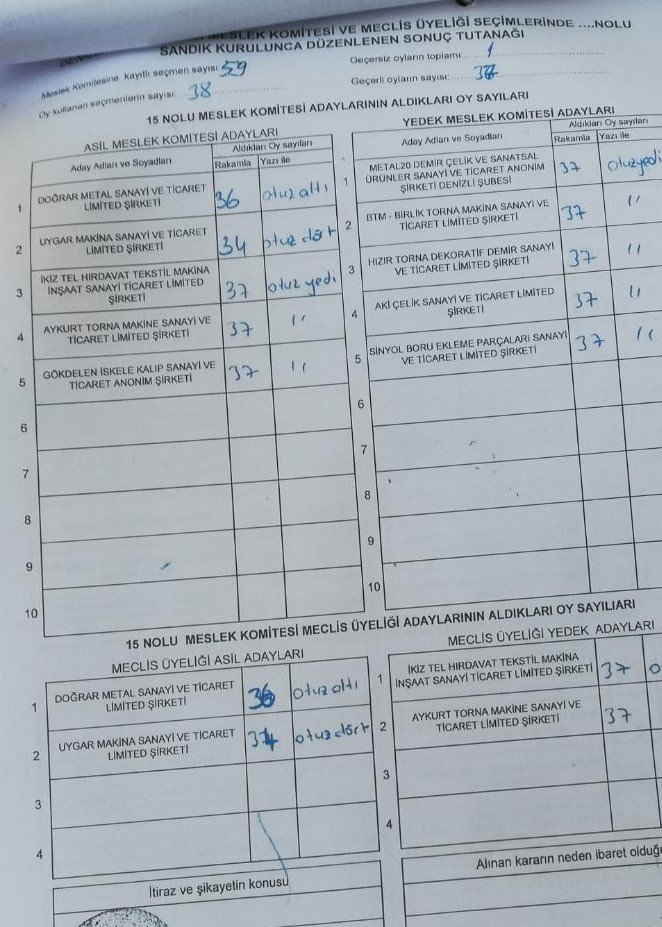 MESLEK KOMİTESİ VE MECLİS ÜYELİĞİ SEÇİMLERİNDE ....NOLU
SANDIK KURULUNCA DÜZENLENEN SONUÇ TUTANAĞI
Meslek Komitesine kayıtlı seçmen sayısı: 59
Geçersiz oyların toplamı: 1
Oy kullanan seçmenlerin sayısı: 38
Geçerli oyların sayısı: 37
15 NOLU MESLEK KOMİTESİ ADAYLARININ ALDIKLARI OY SAYILARI
ASİL MESLEK KOMİTESİ ADAYLARI
Aday Adları ve Soyadları
Aldıkları Oy sayıları
Rakamla Yazı ile
1 DOĞRAR METAL SANAYİ VE TİCARET
LİMİTED ŞİRKETİ
36 otuz altı
2 UYGAR MAKİNA SANAYİ VE TİCARET
LİMİTED ŞİRKETİ
34 otuz dört
3 İKİZ TEL HIRDAVAT TEKSTİL MAKİNA
İNŞAAT SANAYİ TİCARET LİMİTED
ŞİRKETİ
37 otuz yedi
4 AYKURT TORNA MAKİNE SANAYİ VE
TİCARET LİMİTED ŞİRKETİ
37 "
5 GÖKDELEN İSKELE KALIP SANAYİ VE
TİCARET ANONİM ŞİRKETİ
37 "
6
7
8
9
10
YEDEK MESLEK KOMİTESİ ADAYLARI
Aday Adları ve Soyadları
Aldıkları Oy sayıları
Rakamla Yazı ile
1 METAL20 DEMİR ÇELİK VE SANATSAL
ÜRÜNLER SANAYİ VE TİCARET ANONİM
ŞİRKETİ DENİZLİ ŞUBESİ
37 otuzyedi
2 BTM - BİRLİK TORNA MAKİNA SANAYİ VE
TİCARET LİMİTED ŞİRKETİ
37 "
3 HIZIR TORNA DEKORATİF DEMİR SANAYİ
VE TİCARET LİMİTED ŞİRKETİ
37 "
4 AKİ ÇELİK SANAYİ VE TİCARET LİMİTED
ŞİRKETİ
37 "
5 SİNYOL BORU EKLEME PARÇALARI SANAYİ
VE TİCARET LİMİTED ŞİRKETİ
37 "
6
7
8
9
10
15 NOLU MESLEK KOMİTESİ MECLİS ÜYELİĞİ ADAYLARININ ALDIKLARI OY SAYILIARI
MECLİS ÜYELİĞİ ASİL ADAYLARI
1 DOĞRAR METAL SANAYİ VE TİCARET
LİMİTED ŞİRKETİ
36 otuz altı
2 UYGAR MAKİNA SANAYİ VE TİCARET
LİMİTED ŞİRKETİ
34 otuz dört
3
4
MECLİS ÜYELİĞİ YEDEK ADAYLARI
1 İKİZ TEL HIRDAVAT TEKSTİL MAKİNA
İNŞAAT SANAYİ TİCARET LİMİTED ŞİRKETİ
37
2 AYKURT TORNA MAKİNE SANAYİ VE
TİCARET LİMİTED ŞİRKETİ
37
3
4
İtiraz ve şikayetin konusu
Alınan kararın neden ibaret olduğu